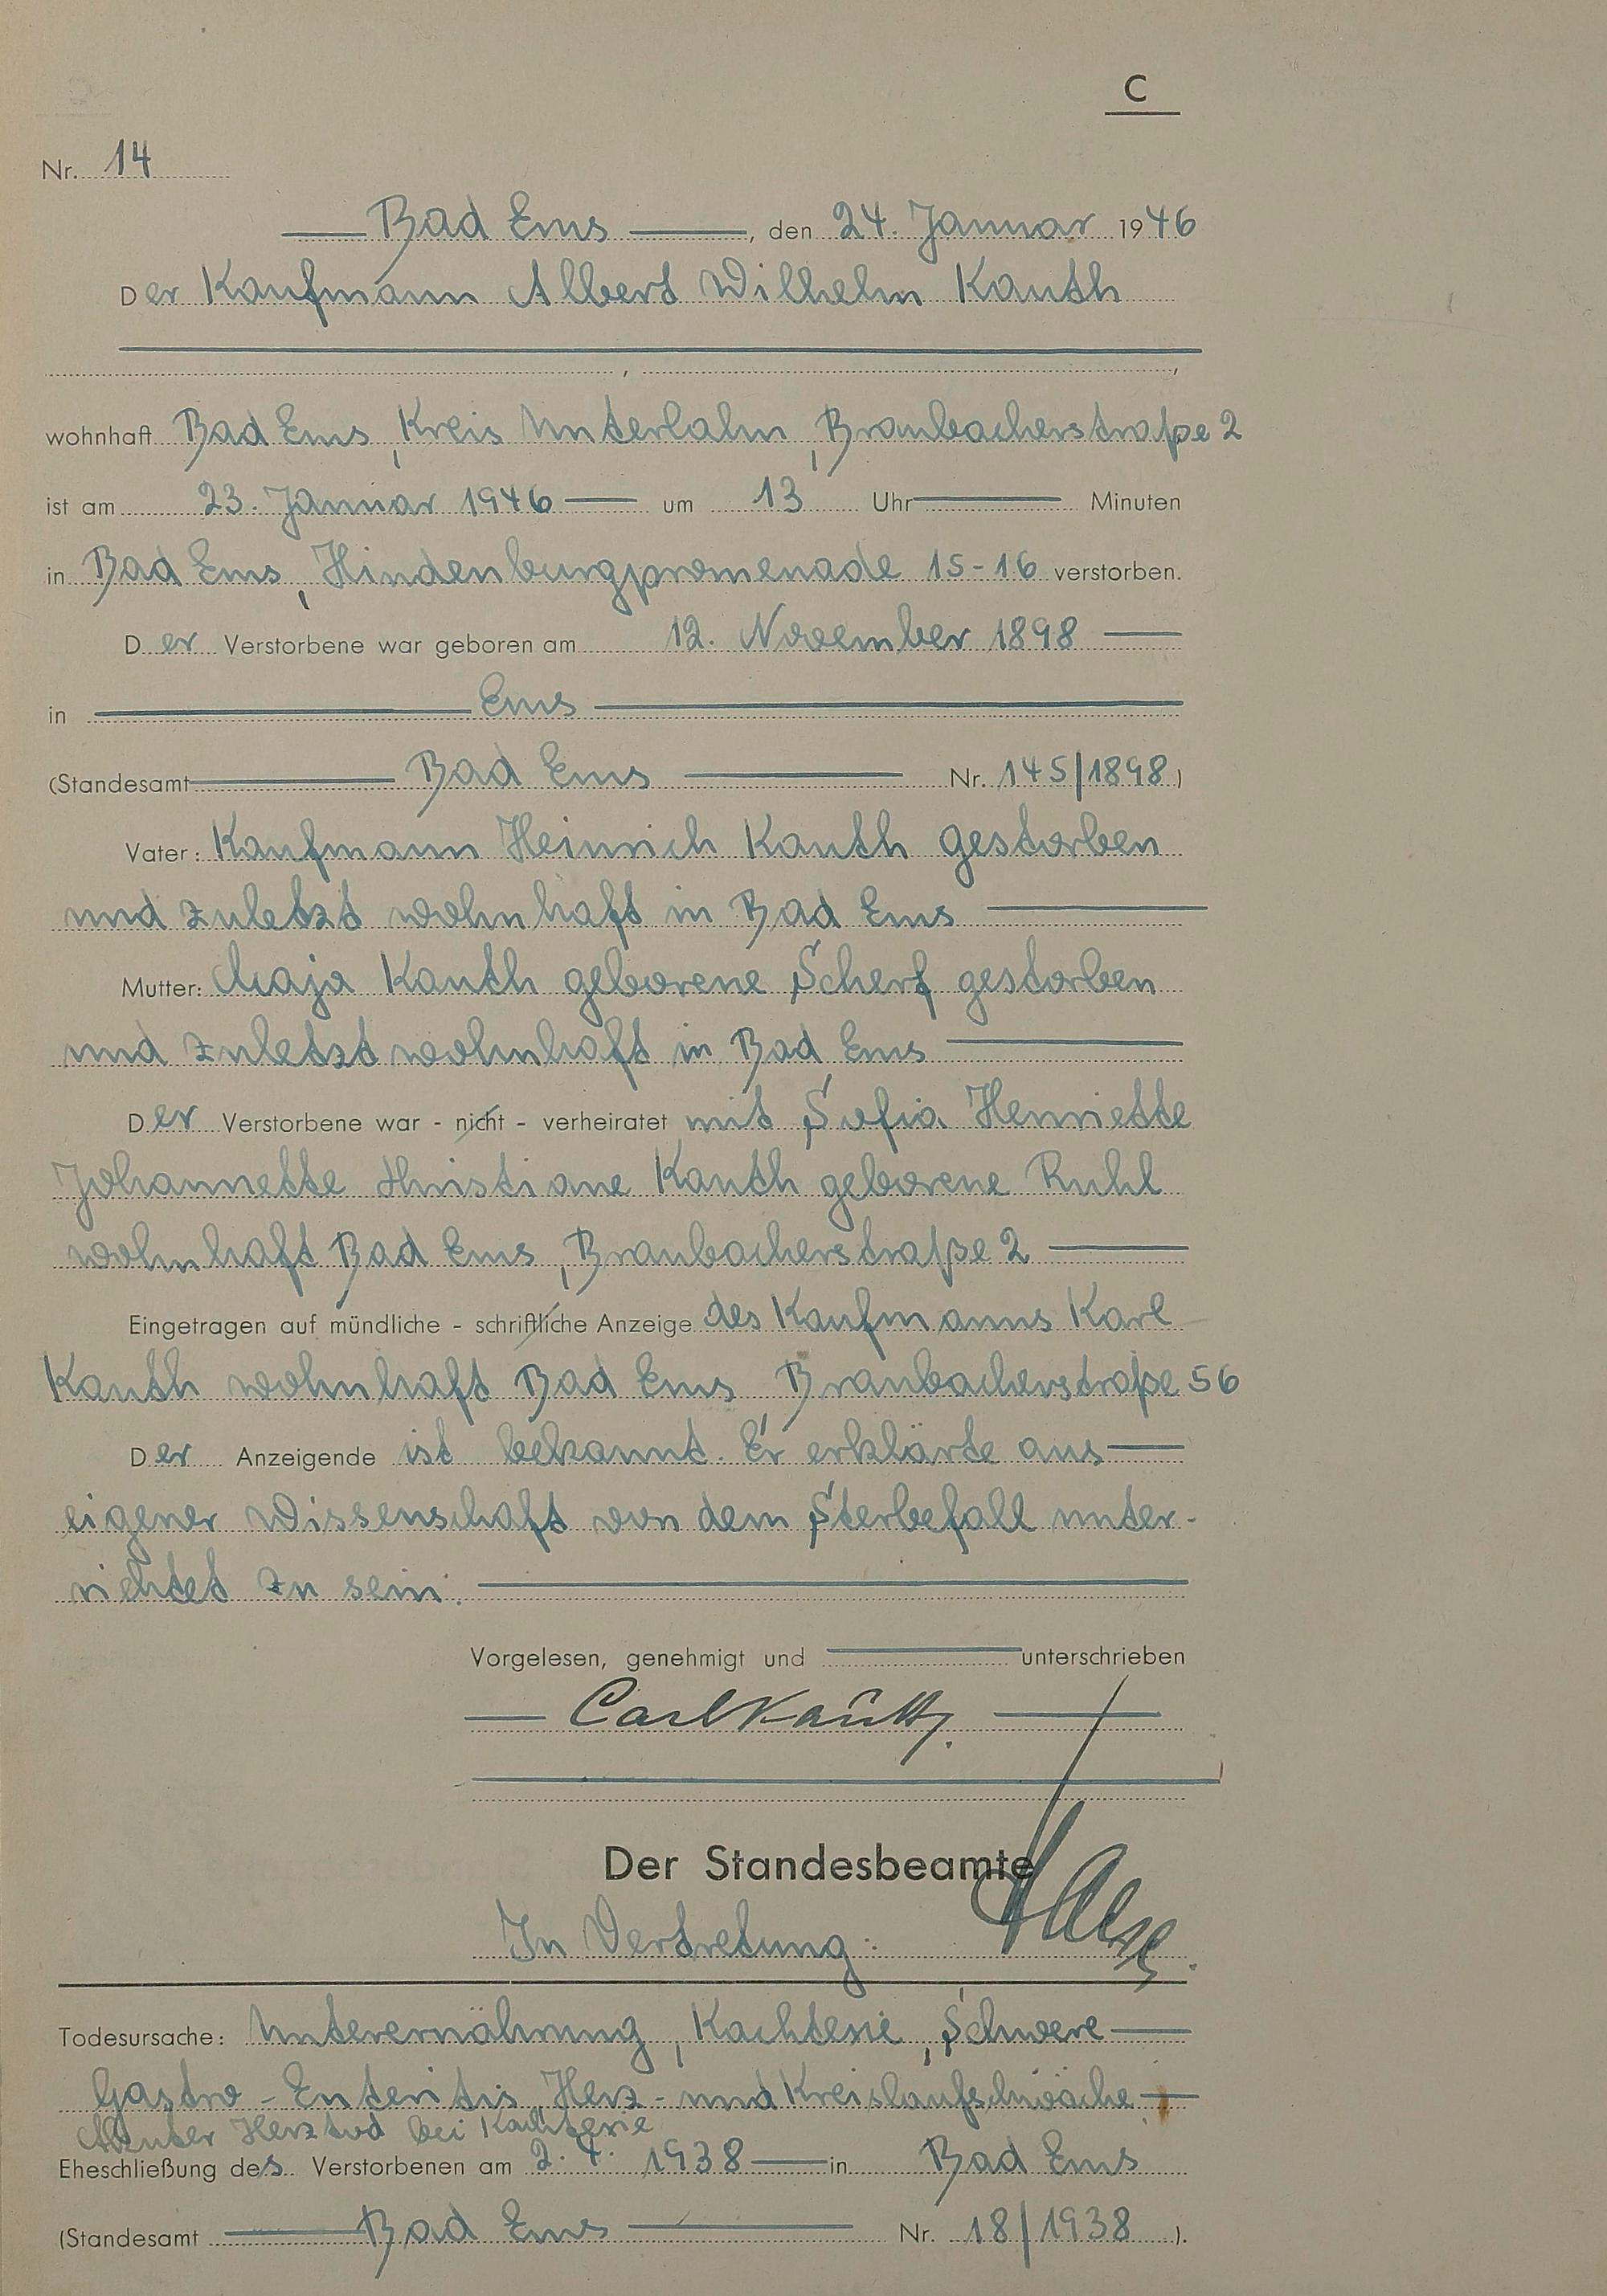 C
Nr. 14
Bad Ems, den 24. Januar 1946
Der Kaufmann Albert Wilhelm Kauth
wohnhaft Bad Ems, Kreis Unterlahn, Braubacherstraße 2
ist am 23. Januar 1946 um 13 Uhr Minuten
in Bad Ems, Hindenburgpromenade 15-16 verstorben.
Der Verstorbene war geboren am 12. November 1898
in Ems
(Standesamt Bad Ems Nr. 145/1898)
Vater: Kaufmann Heinrich Kauth gestorben
und zuletzt wohnhaft in Bad Ems
Mutter: Maja Kauth geborene Scherf gestorben
und zuletzt wohnhaft in Bad Ems
Der Verstorbene war - nicht - verheiratet mit Sofia Henriette
Johannette Christiane Kauth geborene Ruhl
wohnhaft Bad Ems, Braubacherstraße 2
Eingetragen auf mündliche - schriftliche Anzeige des Kaufmanns Karl
Kauth wohnhaft Bad Ems Braubacherstraße 56
Der Anzeigende ist bekannt. Er erklärte aus
eigener Wissenschaft von dem Sterbefall unter-
richtet zu sein.
Vorgelesen, genehmigt und unterschrieben
Carl Kauth.
Der Standesbeamte
In Vertretung:
Todesursache: Unterernährung, Kachtexie, Schwere
Gastro-Enteritis, Herz- und Kreislaufschwäche
Akuter Herztod bei Kachtexie
Eheschließung des Verstorbenen am 2. 4. 1938 in Bad Ems
(Standesamt Bad Ems Nr. 18/1938).